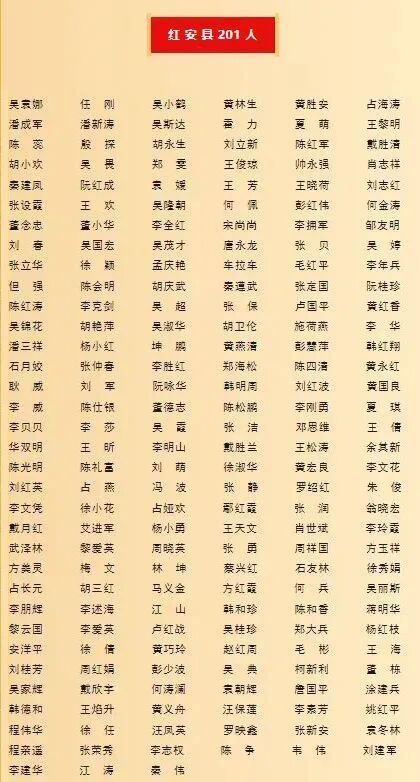 红安县201人
吴袁娜 任刚 吴小鹤 黄林生 黄胜安 占海涛
潘成军 潘新涛 吴斯达 霍力 夏萌 王黎明
陈蕊 殷探 胡永生 刘立新 陈红军 戴胜清
胡小欢 吴畏 郑雯 王俊琼 帅永强 肖志祥
秦建凤 阮红成 袁媛 王芳 王晓荷 刘志红
张设霞 王欢 吴隆朝 何佩 彭红伟 何金涛
董念忠 董小华 李全红 宋尚尚 李拥军 邹友明
刘春 吴国宏 吴茂才 唐永龙 张贝 吴婷
张立华 徐颖 孟庆艳 车拉车 毛红平 李年兵
但强 陈会明 胡庆武 秦遵武 张定国 阮桂珍
陈红涛 李克剑 吴超 张保 卢国平 黄红香
吴锦花 胡艳萍 吴淑华 胡卫伦 施荷燕 李华
潘三祥 杨小红 坤鹏 黄燕清 彭慧萍 韩红翔
石月姣 张仲春 李胜红 郑海松 陈四清 黄永红
耿威 刘军 阮咏华 韩明周 刘红波 黄国良
李威 陈仕银 董德志 陈松鹏 李刚勇 夏琪
李贝贝 李莎 吴霞 张洁 邓思维 王倩
华双明 王昕 李明山 戴胜兰 王松涛 余其新
陈光明 陈礼富 刘萌 徐淑华 黄宏良 李文花
刘红英 占燕 冯波 张静 罗绍红 朱俊
李文凭 徐小花 占娅欢 鄢红霞 张润 翁晓宏
戴月红 艾进军 杨小勇 王天文 肖世斌 李玲霞
武泽林 黎爱英 周晓英 张勇 周祥国 方玉祥
方奕灵 梅文 林坤 蔡兴红 石友林 徐秀娟
占长元 胡三红 马义金 方红霞 何兵 吴丽斯
李朋辉 李述海 江山 韩和珍 陈和香 蒋明华
黎云国 李爱英 卢红战 吴桂珍 郑大兵 杨红枝
安洋平 徐倩 黄巧玲 赵红周 毛彬 王海
刘桂芳 周红娟 彭少波 吴典 柯新利 董栋
吴家辉 戴欣宇 何涛澜 袁朝辉 詹国平 涂建兵
韩德和 王焰升 黄义舟 汪保莲 李素芳 姚红平
程伟华 徐任 汪凤英 罗映鑫 张新安 袁冬林
程亲遥 张茉秀 李志权 陈争 韦伟 刘建军
李建华 江涛 秦伟